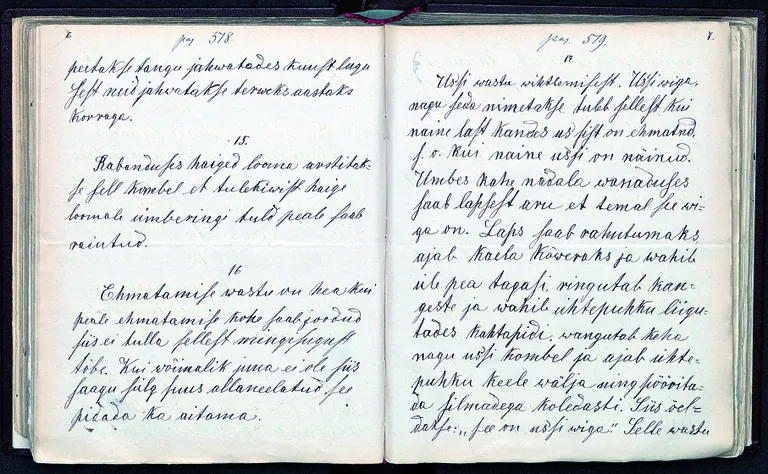 6
pag. 578.
peetakse tangu jahwatades kuust lugu
sest neid jahwatakse terweks aastaks
korraga.
15.
Rabanduses haiged looma arstitak-
se sell kombel et tulekiwist haige
loomale ümberingi tuld peale saab
raiutud.
16
Ehmatamise wastu on hea kui
peale ehmatamise kohe saab joodud
siis ei tulla sellest mingisugust
tõbe. Kui võimalik juua ei ole siis
saagu sülg suus allaneelatud see
pidada ka aitama.
pag. 579.
7.
17
Ussi wastu wihtlemisest. Ussi wiga,
nagu seda nimetakse tuleb sellest kui
naine last kandes ussist on ehmatud
s. o. kui naine ussi on näinud.
Umbes kahe nädala wanaduses
saab lapsest aru et temal see wi-
ga on. Laps saab rahutumaks,
ajab kaela kõweraks ja wahib
üle pea tagasi, ringutab kan-
geste ja wahib ühtepuhku liigu-
tades kahtapidi, wangutab keha
nagu ussi kombel ja ajab ühte-
puhku keele wälja ning pöörita-
da silmadega koledasti. Siis öel-
datse: „see on ussi wiga." Selle wastu